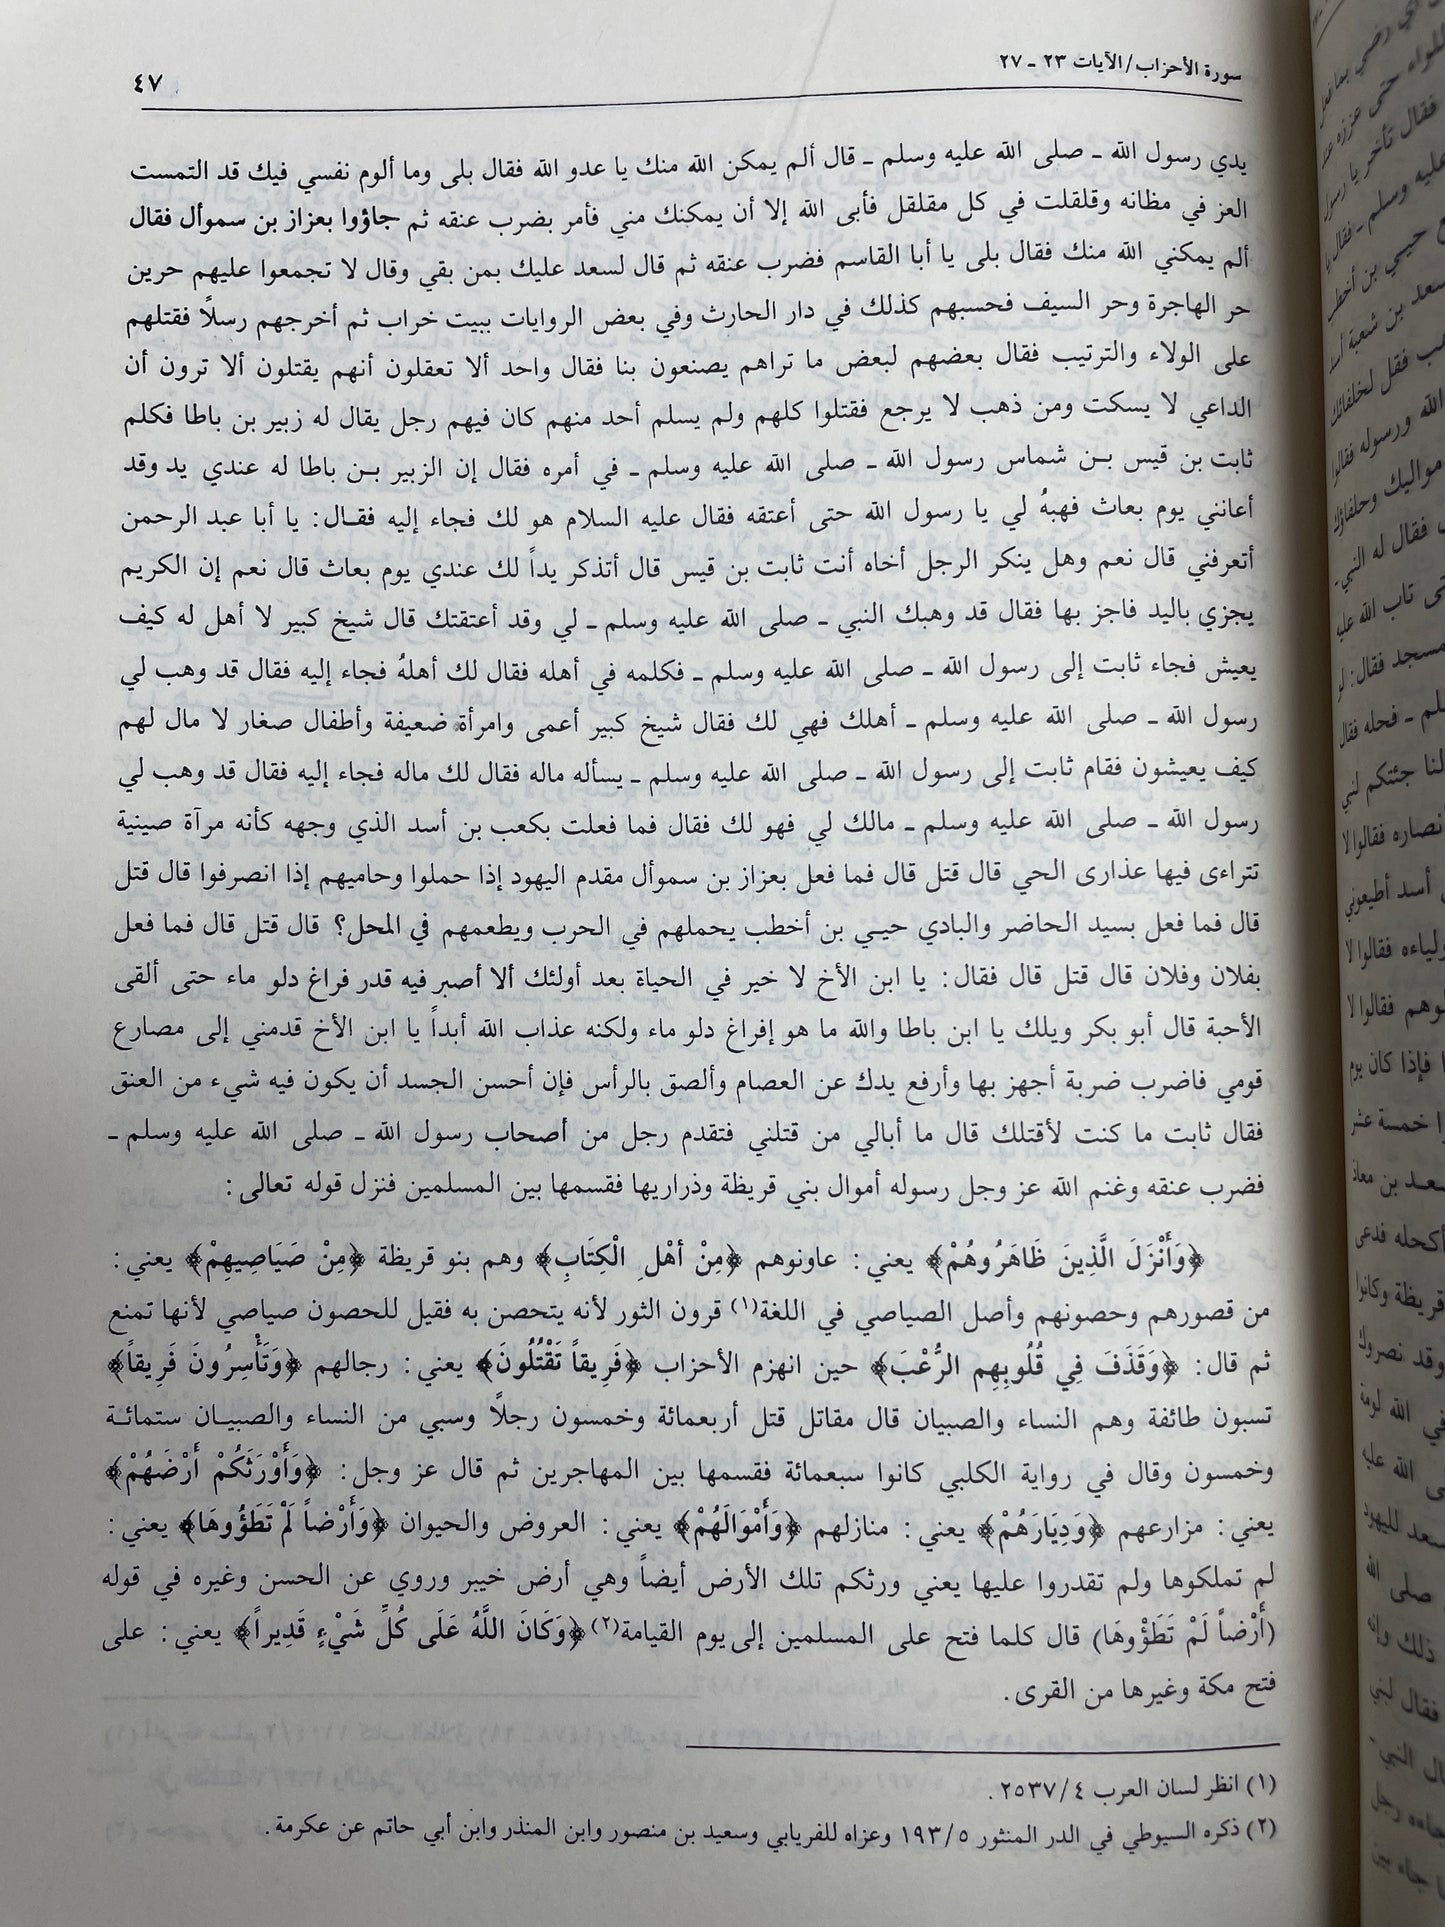 سورة الأحزاب/الآيات ٢٣ ـ ٢٧
٤٧
يدي رسول الله ـ صلى الله عليه وسلم ـ قال ألم يمكن الله منك يا عدو الله فقال بلى وما ألوم نفسي فيك قد التمست
العز في مظانه وقلقلت في كل مقلقل فأبى الله إلا أن يمكنك مني فأمر بضرب عنقه ثم جاؤوا بعزاز بن سموأل فقال
ألم يمكني الله منك فقال بلى يا أبا القاسم فضرب عنقه ثم قال لسعد عليك بمن بقي وقال لا تجمعوا عليهم حرين
حر الهاجرة وحر السيف فحسبهم كذلك في دار الحارث وفي بعض الروايات ببيت خراب ثم أخرجهم رسلاً فقتلهم
على الولاء والترتيب فقال بعضهم لبعض ما تراهم يصنعون بنا فقال واحد ألا تعقلون أنهم يقتلون ألا ترون أن
الداعي لا يسكت ومن ذهب لا يرجع فقتلوا كلهم ولم يسلم أحد منهم كان فيهم رجل يقال له زبير بن باطا فكلم
ثابت بن قيس بن شماس رسول الله ـ صلى الله عليه وسلم ـ في أمره فقال إن الزبير بن باطا له عندي يد وقد
أعانني يوم بعاث فهبهُ لي يا رسول الله حتى أعتقه فقال عليه السلام هو لك فجاء إليه فقال: يا أبا عبد الرحمن
أتعرفني قال نعم وهل ينكر الرجل أخاه أنت ثابت بن قيس قال أتذكر يداً لك عندي يوم بعاث قال نعم إن الكريم
يجزي باليد فاجز بها فقال قد وهبك النبي ـ صلى الله عليه وسلم ـ لي وقد أعتقتك قال شيخ كبير لا أهل له كيف
يعيش فجاء ثابت إلى رسول الله ـ صلى الله عليه وسلم ـ فكلمه في أهله فقال لك أهلهُ فجاء إليه فقال قد وهب لي
رسول الله ـ صلى الله عليه وسلم ـ أهلك فهي لك فقال شيخ كبير أعمى وامرأة ضعيفة وأطفال صغار لا مال لهم
كيف يعيشون فقام ثابت إلى رسول الله ـ صلى الله عليه وسلم ـ يسأله ماله فقال لك ماله فجاء إليه فقال قد وهب لي
رسول الله ـ صلى الله عليه وسلم ـ مالك لي فهو لك فقال فما فعلت بكعب بن أسد الذي وجهه كأنه مرآة صينية
تتراءى فيها عذارى الحي قال قتل قال فما فعل بعزاز بن سموأل مقدم اليهود إذا حملوا وحاميهم إذا انصرفوا قال قتل
قال فما فعل بسيد الحاضر والبادي حيي بن أخطب يحملهم في الحرب ويطعمهم في المحل؟ قال قتل قال فما فعل
بفلان وفلان قال قتل قال فقال: يا ابن الأخ لا خير في الحياة بعد أولئك ألا أصبر فيه قدر فراغ دلو ماء حتى ألقى
الأحبة قال أبو بكر ويلك يا ابن باطا والله ما هو إفراغ دلو ماء ولكنه عذاب الله أبداً يا ابن الأخ قدمني إلى مصارع
قومي فاضرب ضربة أجهز بها وأرفع يدك عن العصام وألصق بالرأس فإن أحسن الجسد أن يكون فيه شيء من العنق
فقال ثابت ما كنت لأقتلك قال ما أبالي من قتلني فتقدم رجل من أصحاب رسول الله ـ صلى الله عليه وسلم ـ
فضرب عنقه وغنم الله عز وجل رسوله أموال بني قريظة وذراريها فقسمها بين المسلمين فنزل قوله تعالى:
﴿وَأَنْزَلَ الَّذِينَ ظَاهَرُوهُمْ﴾ يعني: عاونوهم ﴿مِنْ أهْلِ الْكِتَابِ﴾ وهم بنو قريظة ﴿مِنْ صَيَاصِيهِمْ﴾ يعني:
من قصورهم وحصونهم وأصل الصياصي في اللغة(١) قرون الثور لأنه يتحصن به فقيل للحصون صياصي لأنها تمنع
ثم قال: ﴿وَقَذَفَ فِي قُلُوبِهِم الرُّعْبَ﴾ حين انهزم الأحزاب ﴿فَرِيقاً تَقْتُلُونَ﴾ يعني: رجالهم ﴿وَتَأْسِرُونَ فَرِيقاً﴾
تسبون طائفة وهم النساء والصبيان قال مقاتل قتل أربعمائة وخمسون رجلاً وسبي من النساء والصبيان ستمائة
وخمسون وقال في رواية الكلبي كانوا سبعمائة فقسمها بين المهاجرين ثم قال عز وجل: ﴿وَأَوْرَثَكُمْ أَرْضَهُمْ﴾
يعني: مزارعهم ﴿وَدِيَارَهُمْ﴾ يعني: منازلهم ﴿وَأَمْوَالَهُمْ﴾ يعني: العروض والحيوان ﴿وَأَرْضاً لَمْ تَطَؤُوهَا﴾ يعني:
لم تملكوها ولم تقدروا عليها يعني ورثكم تلك الأرض أيضاً وهي أرض خيبر وروي عن الحسن وغيره في قوله
(أَرْضاً لَمْ تَطَؤُوهَا) قال كلما فتح على المسلمين إلى يوم القيامة(٢) ﴿وَكَانَ اللَّهُ عَلَى كُلِّ شَيْءٍ قَدِيراً﴾ يعني: على
فتح مكة وغيرها من القرى.
(١) انظر لسان العرب ٤/٢٥٣٧.
(٢) ذكره السيوطي في الدر المنثور ٥/١٩٣ وعزاه للفريابي وسعيد بن منصور وابن المنذر وابن أبي حاتم عن عكرمة.